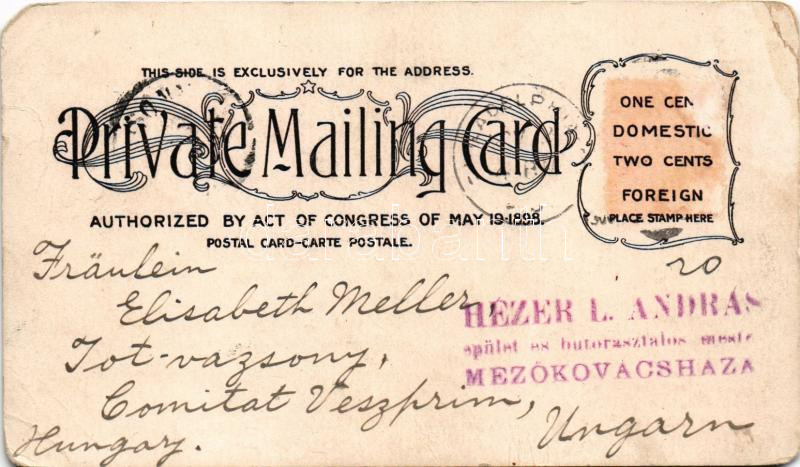 THIS SIDE IS EXCLUSIVELY FOR THE ADDRESS.
Private Mailing Card
AUTHORIZED BY ACT OF CONGRESS OF MAY 19-1898.
POSTAL CARD-CARTE POSTALE.
ONE CEN
DOMESTIC
TWO CENTS
FOREIGN
PLACE STAMP HERE
ADELPHI
darabanth
20
Fräulein
Elisabeth Meller,
Tot-vazsony,
Comitat Veszprim,
Hungary.
Ungarn
HÉZER L. ANDRÁS
épület és butorasztalos meste
MEZŐKOVÁCSHAZA